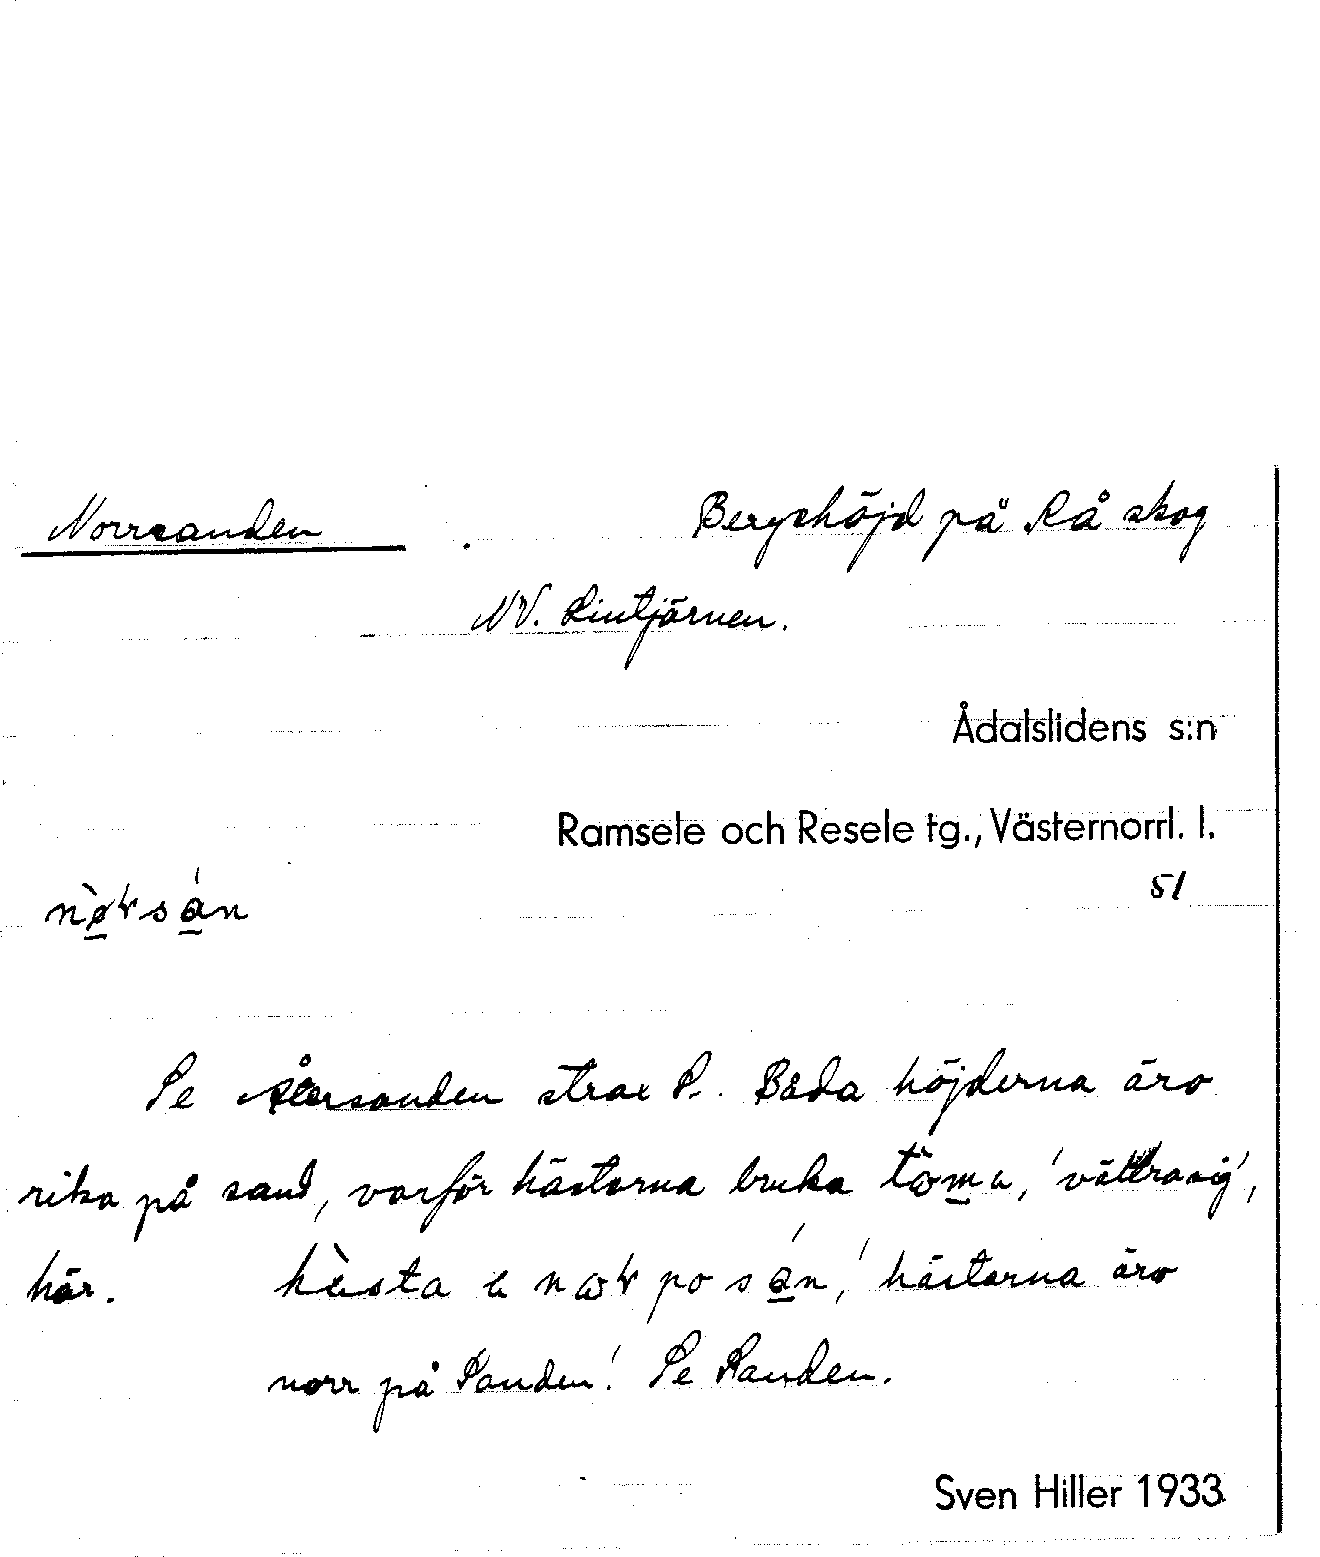 Norrsanden
Bergshöjd på Rå skog
NV. Lintjärnen.
Ådalslidens s:n
Ramsele och Resele tg., Västernorrl. l.
51
nø̀rsán
Se strax S. Båda höjderna äro
rika på sand, varför hästarna bruka 'vältra sig',
här. hästa norr på sán, 'hästarna äro
norr på Sanden'. Se Sanden.
Sven Hiller 1933